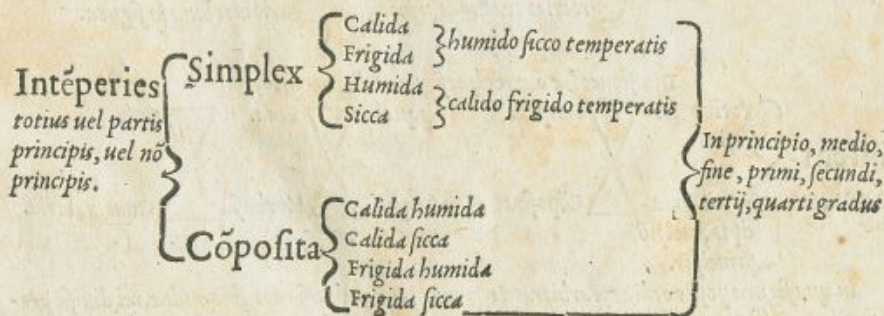 Intẽperies
totius uel partis
principis, uel nõ
principis.
Simplex
Calida
Frigida
humido ſicco temperatis
Humida
Sicca
calido frigido temperatis
Cõpoſita
Calida humida
Calida ſicca
Frigida humida
Frigida ſicca
In principio, medio,
fine, primi, ſecundi,
tertij, quarti gradus